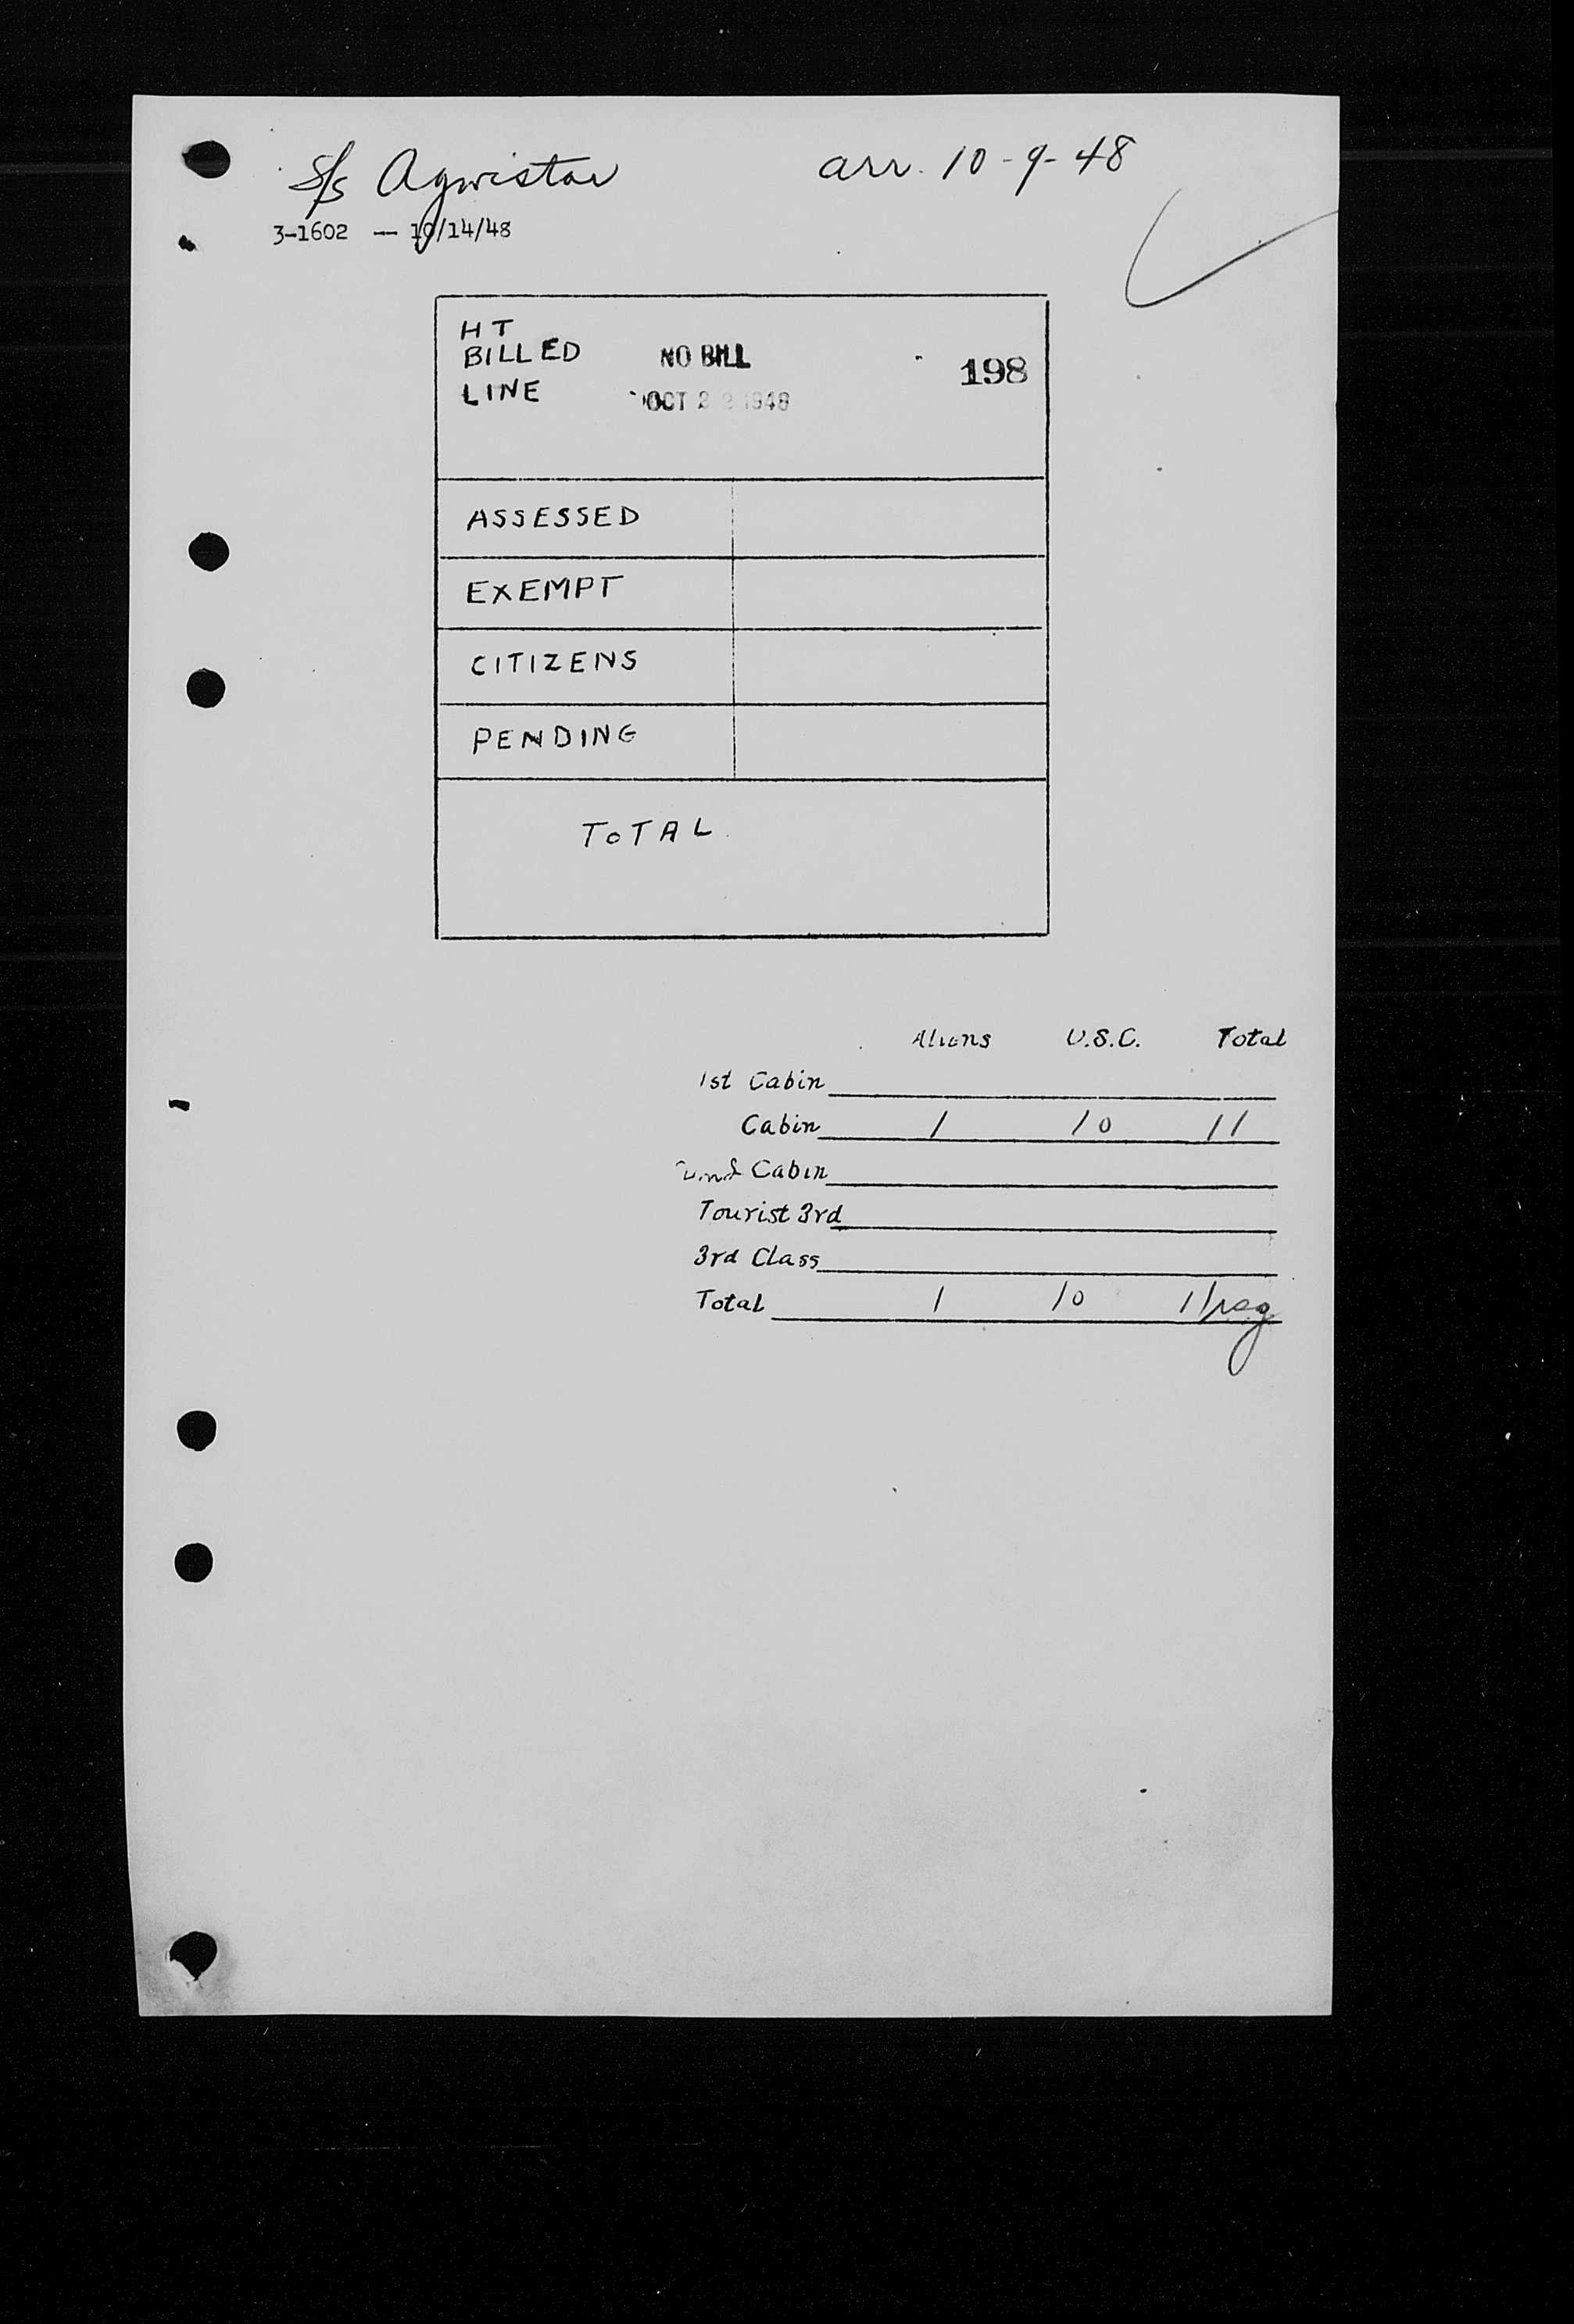 S/S Agwistar arr. 10-9-48
3-1602 — 10/14/48
HT
BILLED NO BILL 198
LINE OCT 22 1948
ASSESSED
EXEMPT
CITIZENS
PENDING
TOTAL
Aliens U.S.C. Total
1st Cabin
Cabin 1 10 11
Cabin
Tourist 3rd
3rd Class
Total 1 10 11